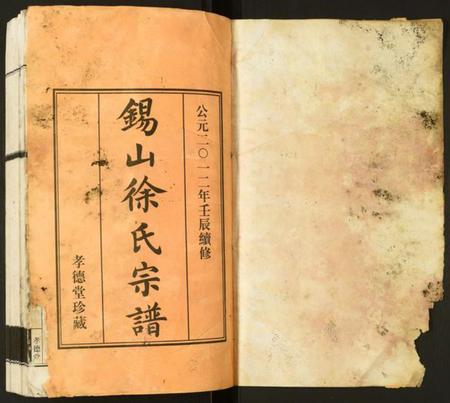 公元二〇一二年壬辰續修
錫山徐氏宗譜
孝德堂珍藏
孝德堂